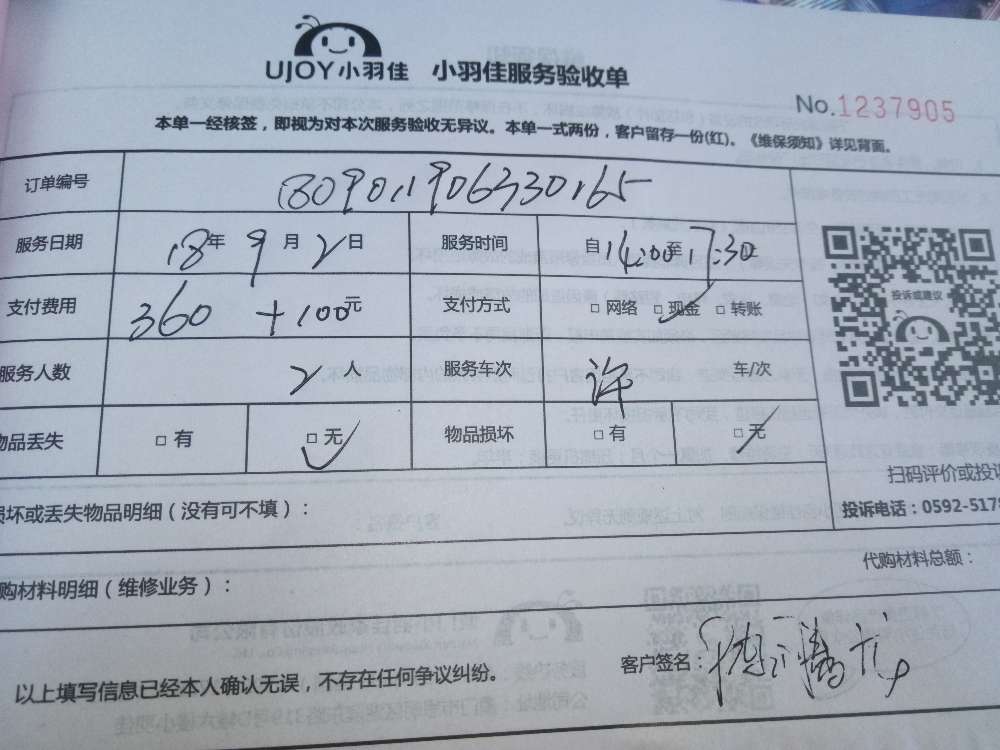 UJOY小羽佳 小羽佳服务验收单
No.1237905
本单一经核签，即视为对本次服务验收无异议。本单一式两份，客户留存一份(红)。《维保须知》详见背面。
订单编号 180901190633065
服务日期 18年9月2日 服务时间 自14:00至17:30
支付费用 360+100元 支付方式 □网络 □现金 □转账
服务人数 2人 服务车次 许 车/次
物品丢失 □有 □无 物品损坏 □有 □无
投诉或建议
扫码评价或投诉
损坏或丢失物品明细(没有可不填)：
投诉电话：0592-5178
购材料明细(维修业务)：
代购材料总额：
以上填写信息已经本人确认无误，不存在任何争议纠纷。
客户签名：